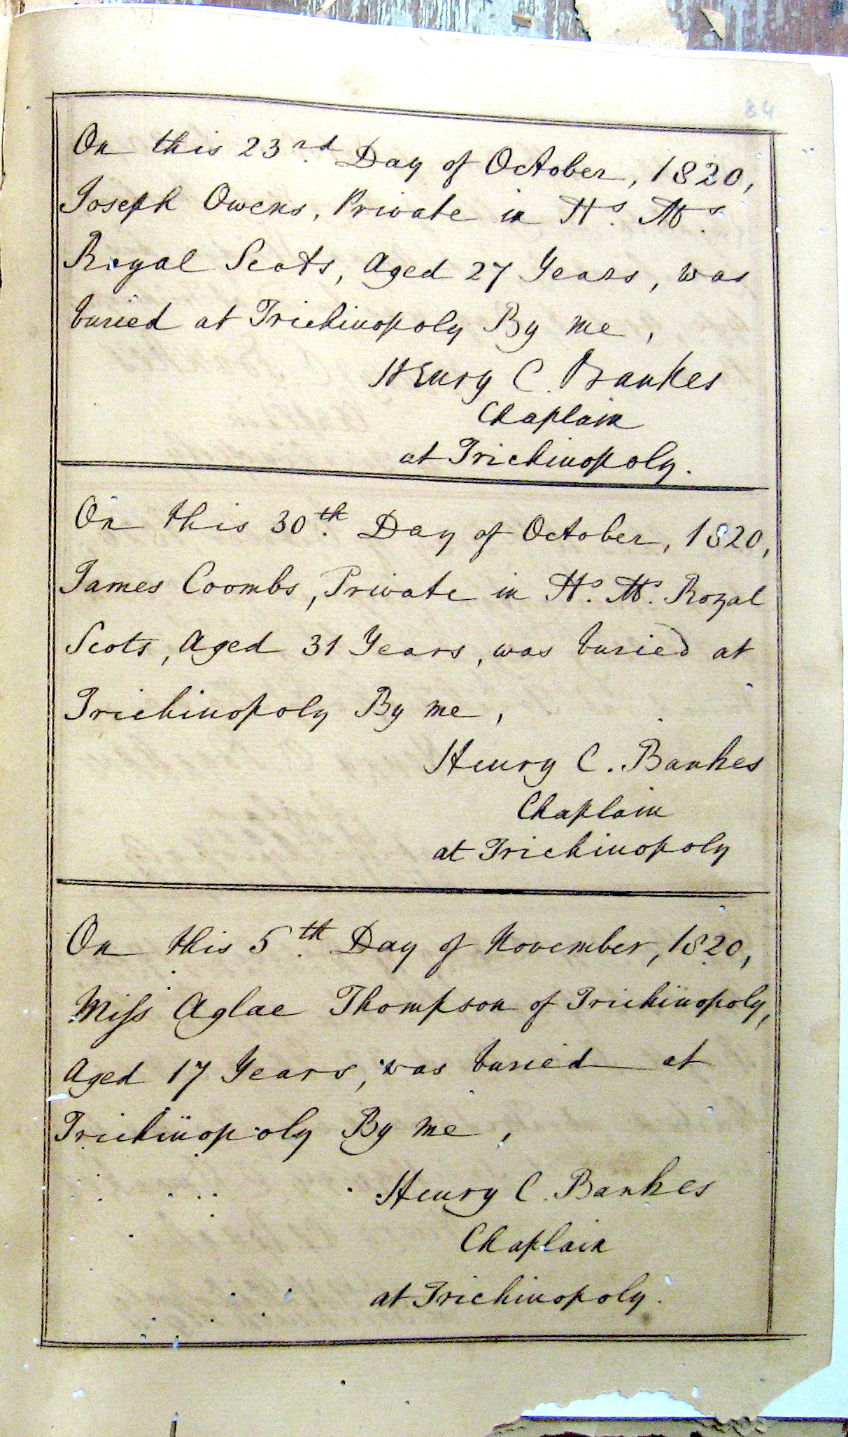 84
On this 23rd Day of October, 1820,
Joseph Owens, Private in H.s M.s
Royal Scots, Aged 27 Years, was
buried at Trichinopoly By me,
Henry C. Bankes
Chaplain
at Trichinopoly.
On this 30th Day of October, 1820,
James Coombs, Private in H.s M.s Royal
Scots, Aged 31 Years, was buried at
Trichinopoly By me,
Henry C. Bankes
Chaplain
at Trichinopoly
On this 5th Day of November, 1820,
Miss Aglae Thompson of Trichinopoly,
Aged 17 Years, was buried at
Trichinopoly By me,
Henry C. Bankes
Chaplain
at Trichinopoly.